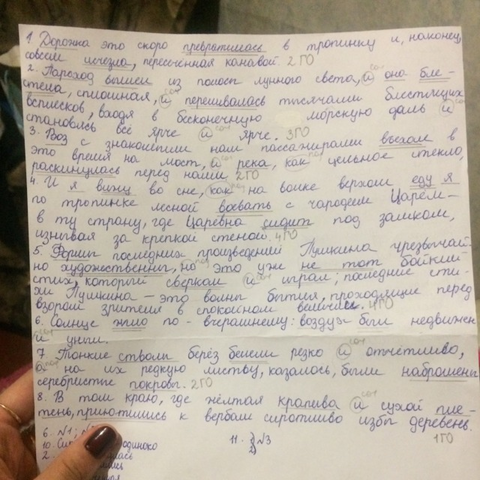 1. Дорожка это скоро превратилась в тропинку и, наконец,
совсем исчезла, пересечённая канавой 2 ГО
2. Пароход вышел из полосы лунного света, и она бле-
стела, сплошная, и переливалась тысячами блестящих
всплесков, входя в бесконечную морскую даль и
становясь всё ярче и ярче. 3ГО
3. Воз с знакомыми нам пассажирами въехал в
это время на мост, и река, как цельное стекло,
раскинулась перед нами 2ГО
4. И я вижу во сне, как на волке верхом еду я
по тропинке лесной воевать с чародеем Царем-
в ту страну, где Царевна сидит под замком,
изнывая за крепкой стеной. 4ГО
5. Формы последних произведений Пушкина чрезвычай-
но художественны, но это уже не тот бойкий
стих, который сверкал и играл; последние сти-
хи Пушкина – это волны бытия, проходящие перед
взором зрителя в спокойном величии. 4ГО
6. Солнце жгло по-вчерашнему: воздух был недвижен
и уныл.
7. Тонкие стволы берёз белели резко и отчётливо,
а на их редкую листву, казалось, были наброшены
серебристые покровы. 2ГО
8. В том краю, где жёлтая крапива и сухой пле-
тень, приютились к вербам сиротливо избы деревень.
1ГО
6. N1;
10. одиноко
11. N3
2.